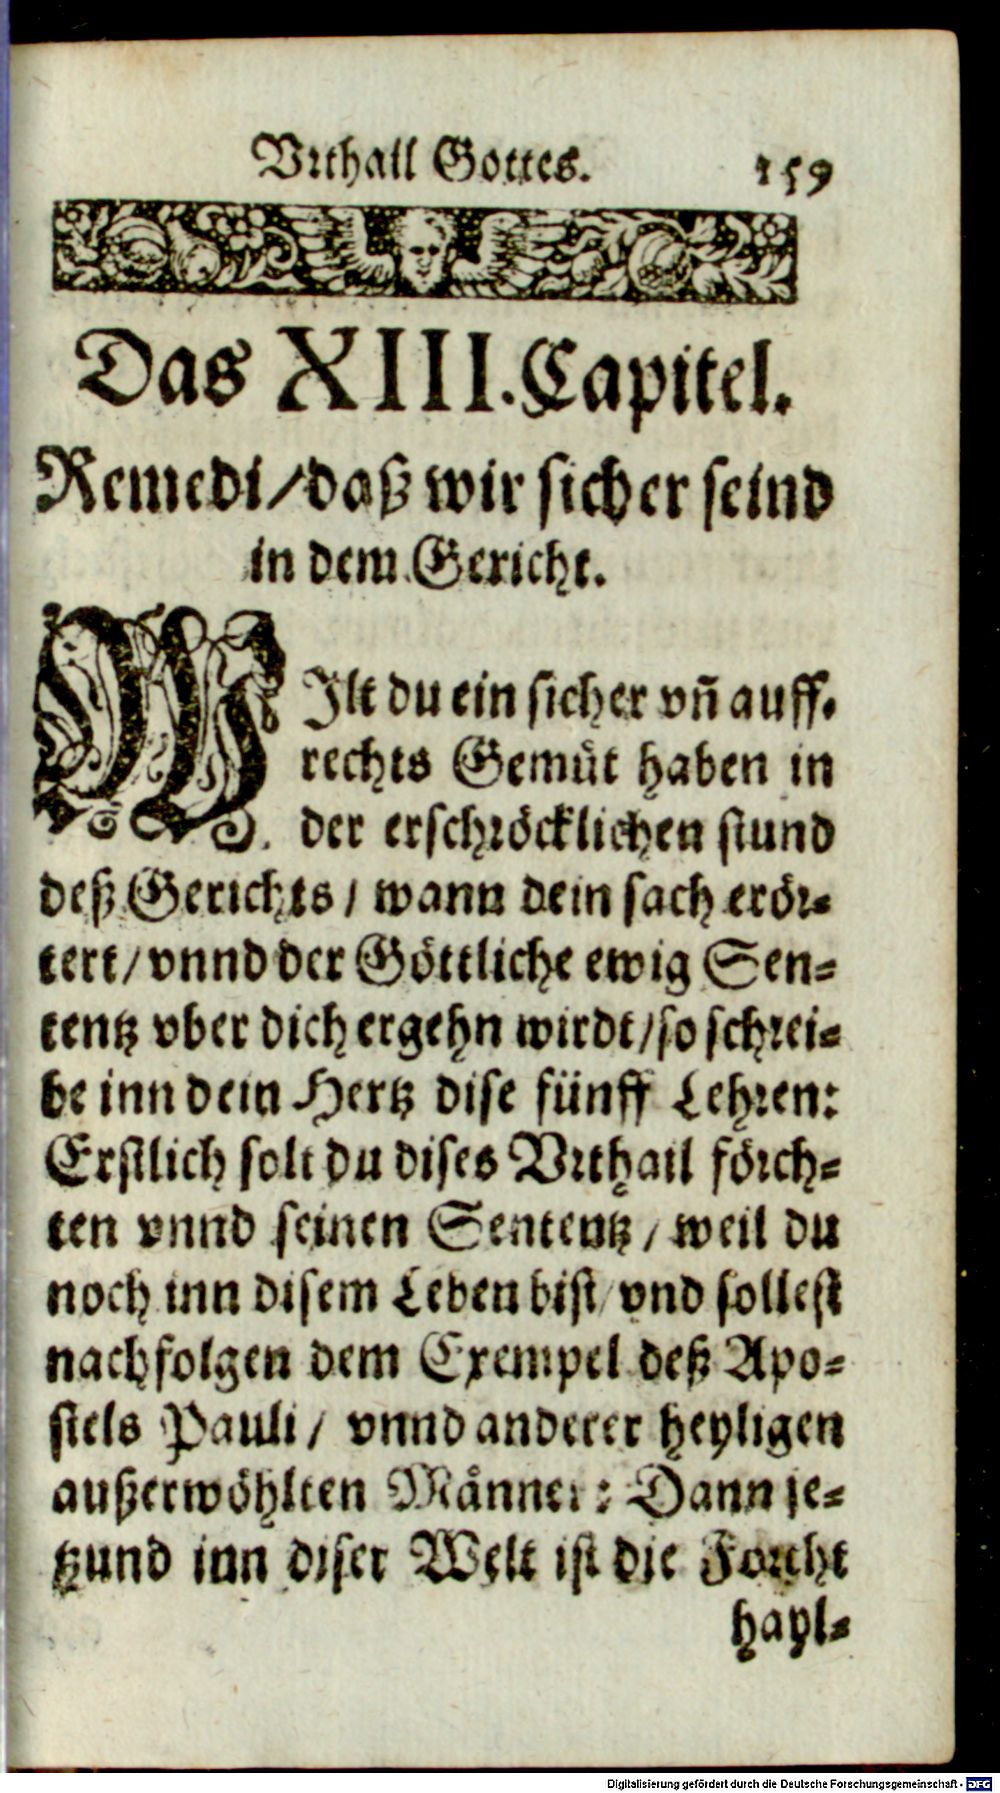 Vrthail Gottes. 159
Das XIII. Capitel.
Remedi/daß wir sicher seind
in dem Gericht.
WIlt du ein sicher vñ auff-
rechts Gemüt haben in
der erschröcklichen stund
deß Gerichts/ wann dein sach erör-
tert/vnnd der Göttliche ewig Sen-
tentz vber dich ergehn wirdt/so schrei-
be inn dein Hertz dise fünff Lehren:
Erstlich solt du dises Vrthail förch-
ten vnnd seinen Sententz/weil du
noch inn disem Leben bist/vnd sollest
nachfolgen dem Exempel deß Apo-
stels Pauli/ vnnd anderer heyligen
außerwöhlten Männer: Dann je-
tzund inn diser Welt ist die Forcht
hayl-
Digitalisierung gefördert durch die Deutsche Forschungsgemeinschaft - DFG